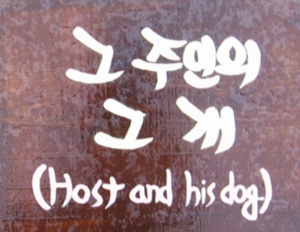 그 주인의
그 개
(Host and his dog)